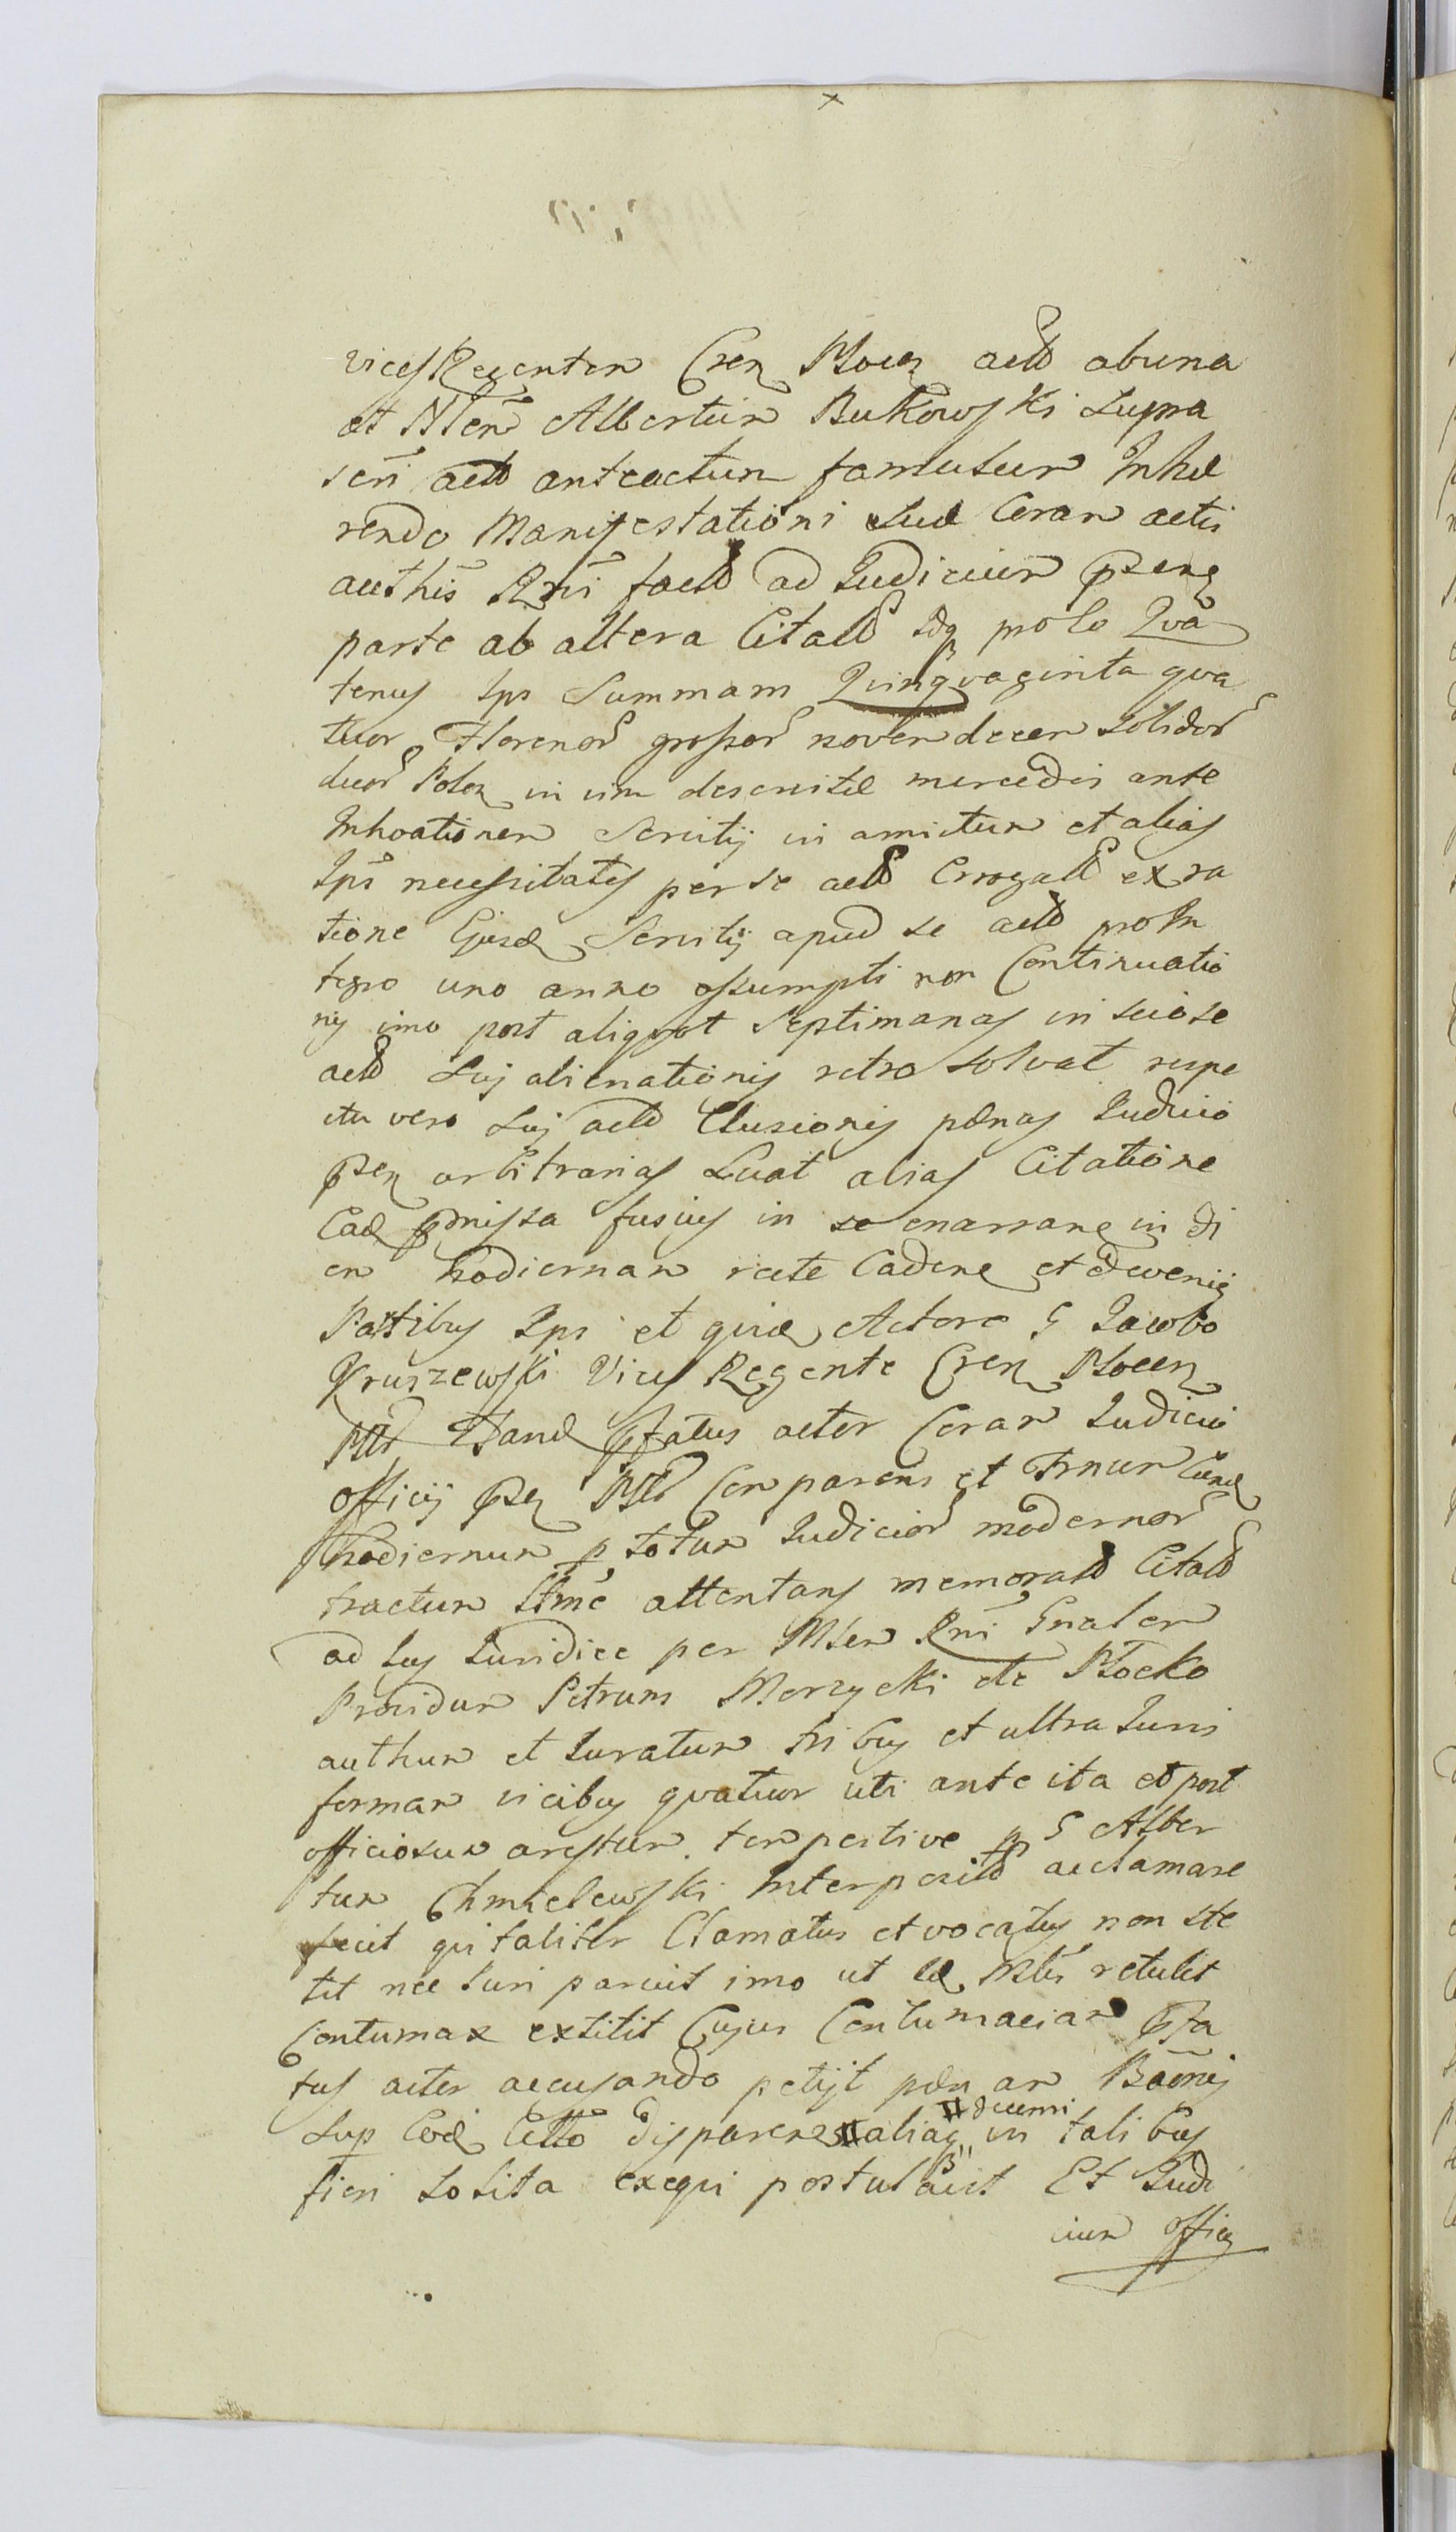 vicesRegenten Cren Plocen actō abuna
et Nlen Albertum Bukowski Supra
scri actō anteactum famulum Inhæ
rendo Manifestationi suæ Coram actis
authis Rni factō ad Judicium pzens
parte ab altera Citatō idq pro eo Qva
tenus Ips Summam Qvinqvaginta qva
tuor Florenor grossor novem decem solidor
duor Polon in vim deservitæ mercedis ante
Inhoationem Servitij in amictum et alias
Ips necessitates per se actō Erogatō ex ra
tione Ejusd Servitij apud se actō pro In
tegro uno anno assumpti non Continuatio
nis imo post aliqvot Septimanas in scio se
actō Suj alienationis retro solvat respe
ctu vero Suj actō Elusionis pænas Judicio
pzen arbitrarias Luat alias Citatione
Ead pmissa fusius in se enarrane in di
em hodiernam recte Cadene et devenij
Partibus Ips et quid Actore G Jacobo
Kruszewski Vices Regente Cren Plocen
Mtt Band pfatus actor Coram Judicio
Officij pzen Mtt Comparens et Trnum Cund
hodiernum p totum Judicior modernor
tractum Ltme attentans memoratō Citatō
ad Jus Juridice per Mlem Rni Gnalem
Providum Petrum Morzycki de Plocko
authum et Juratum tribus et ultra Juris
formam vicibus qvatuor uti ante ita et post
officiosum arestum tempestive p G Alber
tum Chmielewski Interpositō acclamare
fecit qui taliter Clamatus et vocatus non ste
tit nec Juri paruit imo ut id Mlis retulit
Contumax extitit Cujus Contumaciam pfa
tus actor accusando petijt pænam Bannis
Sup Eod Cittō disparene # aliaq in talibus
# decerni
fieri solita exeqvi postulavit Et Judi
cium Officij